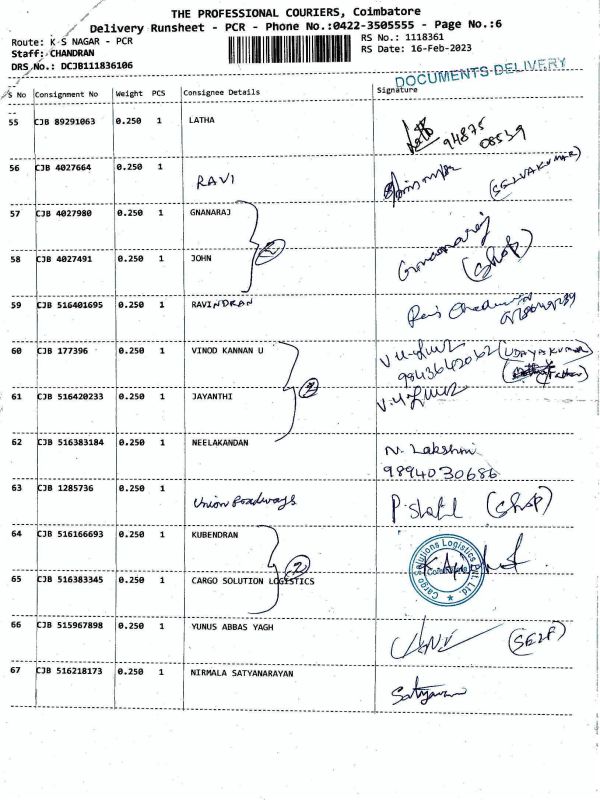 THE PROFESSIONAL COURIERS, Coimbatore
Delivery Runsheet - PCR - Phone No.:0422-3505555 - Page No.:6
Route: K S NAGAR - PCR
RS No.: 1118361
Staff: CHANDRAN
RS Date: 16-Feb-2023
DRS No.: DCJB111836106
DOCUMENTS-DELIVERY
S No Consignment No Weight PCS Consignee Details Signature
55 CJB 89291063 0.250 1 LATHA
94875
08539
56 CJB 4027664 0.250 1 RAVI (SELVAKUMAR)
57 CJB 4027980 0.250 1 GNANARAJ
2
Gnanaraj
58 CJB 4027491 0.250 1 JOHN (SHOP)
59 CJB 516401695 0.250 1 RAVINDRAN
60 CJB 177396 0.250 1 VINOD KANNAN U
9843642062 (UDAYAKUMAR)
(Father)
2
61 CJB 516420233 0.250 1 JAYANTHI
62 CJB 516383184 0.250 1 NEELAKANDAN N. Lakshmi
9894030686
63 CJB 1285736 0.250 1 Union Roadways (SHOP)
64 CJB 516166693 0.250 1 KUBENDRAN
2
Cargo Solutions Logistics Pvt. Ltd.
65 CJB 516383345 0.250 1 CARGO SOLUTION LOGISTICS
66 CJB 515967898 0.250 1 YUNUS ABBAS YAGH (SELF)
67 CJB 516218173 0.250 1 NIRMALA SATYANARAYAN